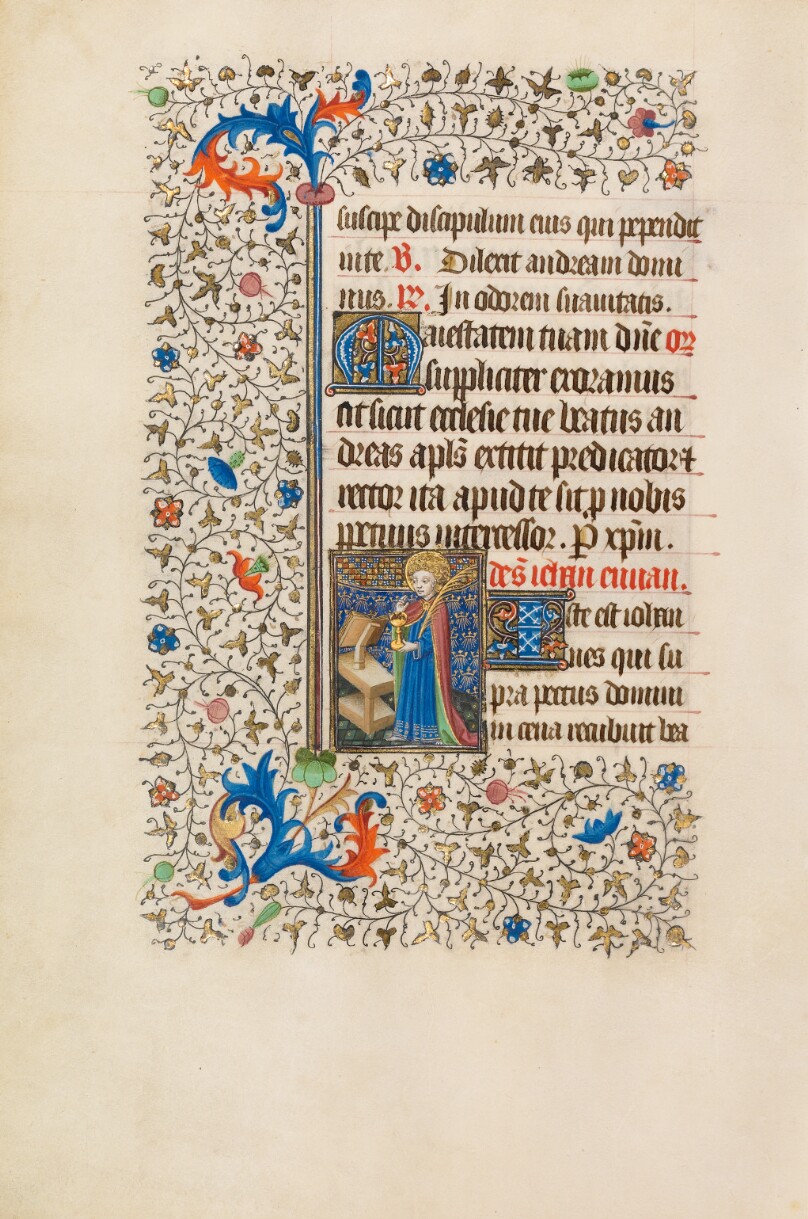 suscipe discipulum eius qui pependit
inte. V. Dilexit andream domi
nus. R. In odorem suauitatis.
Maiestatem tuam dn̄e or
suppliciter exoramus
ut sicut ecclesie tue beatus an
dreas apl̄s extitit predicator ⁊
rector ita apud te sit ꝓ nobis
perpetuus intercessor. P xp̄m.
de s̄ iohan euuan.
Iste est iohan
nes qui su
pra pectus domini
in cena recubuit bea